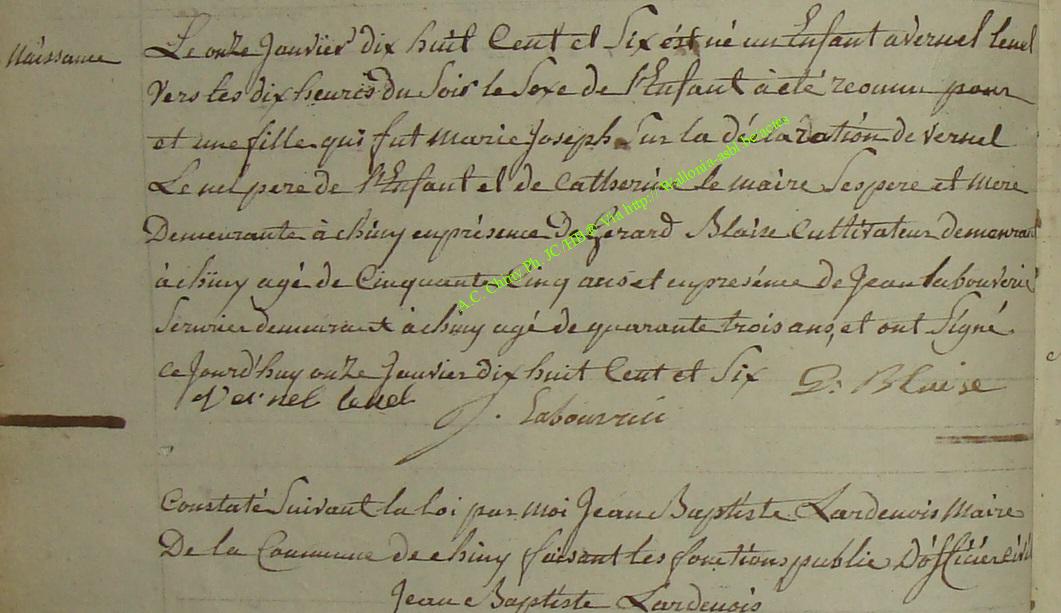 Naissance
Le onze Janvier dix huit Cent et Six est né un Enfant à vernel lenel
vers les dix heures du Soir le Sexe de l'Enfant à été reconnu pour
et une fille qui fut marie Joseph Sur la déclaration de vernel
Lenel pere de l'Enfant et de Catherine le maire Ses pere et mere
Demeurante à chiny en présence de Gerard Blaise Cultivateur demeurant
à chiny agé de Cinquante Cinq ans et en presénce de Jean labouverie
Serurier demeurant à chiny agé de quarante trois ans, et ont Signé
ce Jourd'huy onze Janvier dix huit Cent et Six
G: Blaise
Vernel lenel
J. Labouverie
Constaté Suivant la loi par moi Jean Baptiste Lardenois Maire
De la Commune de chiny faisant les fonctions public D'officiér Civil
Jean Baptiste Lardenois
A.C. Chiny Ph. JC /HB@ Via http://Wallonia-asbl.be/actes